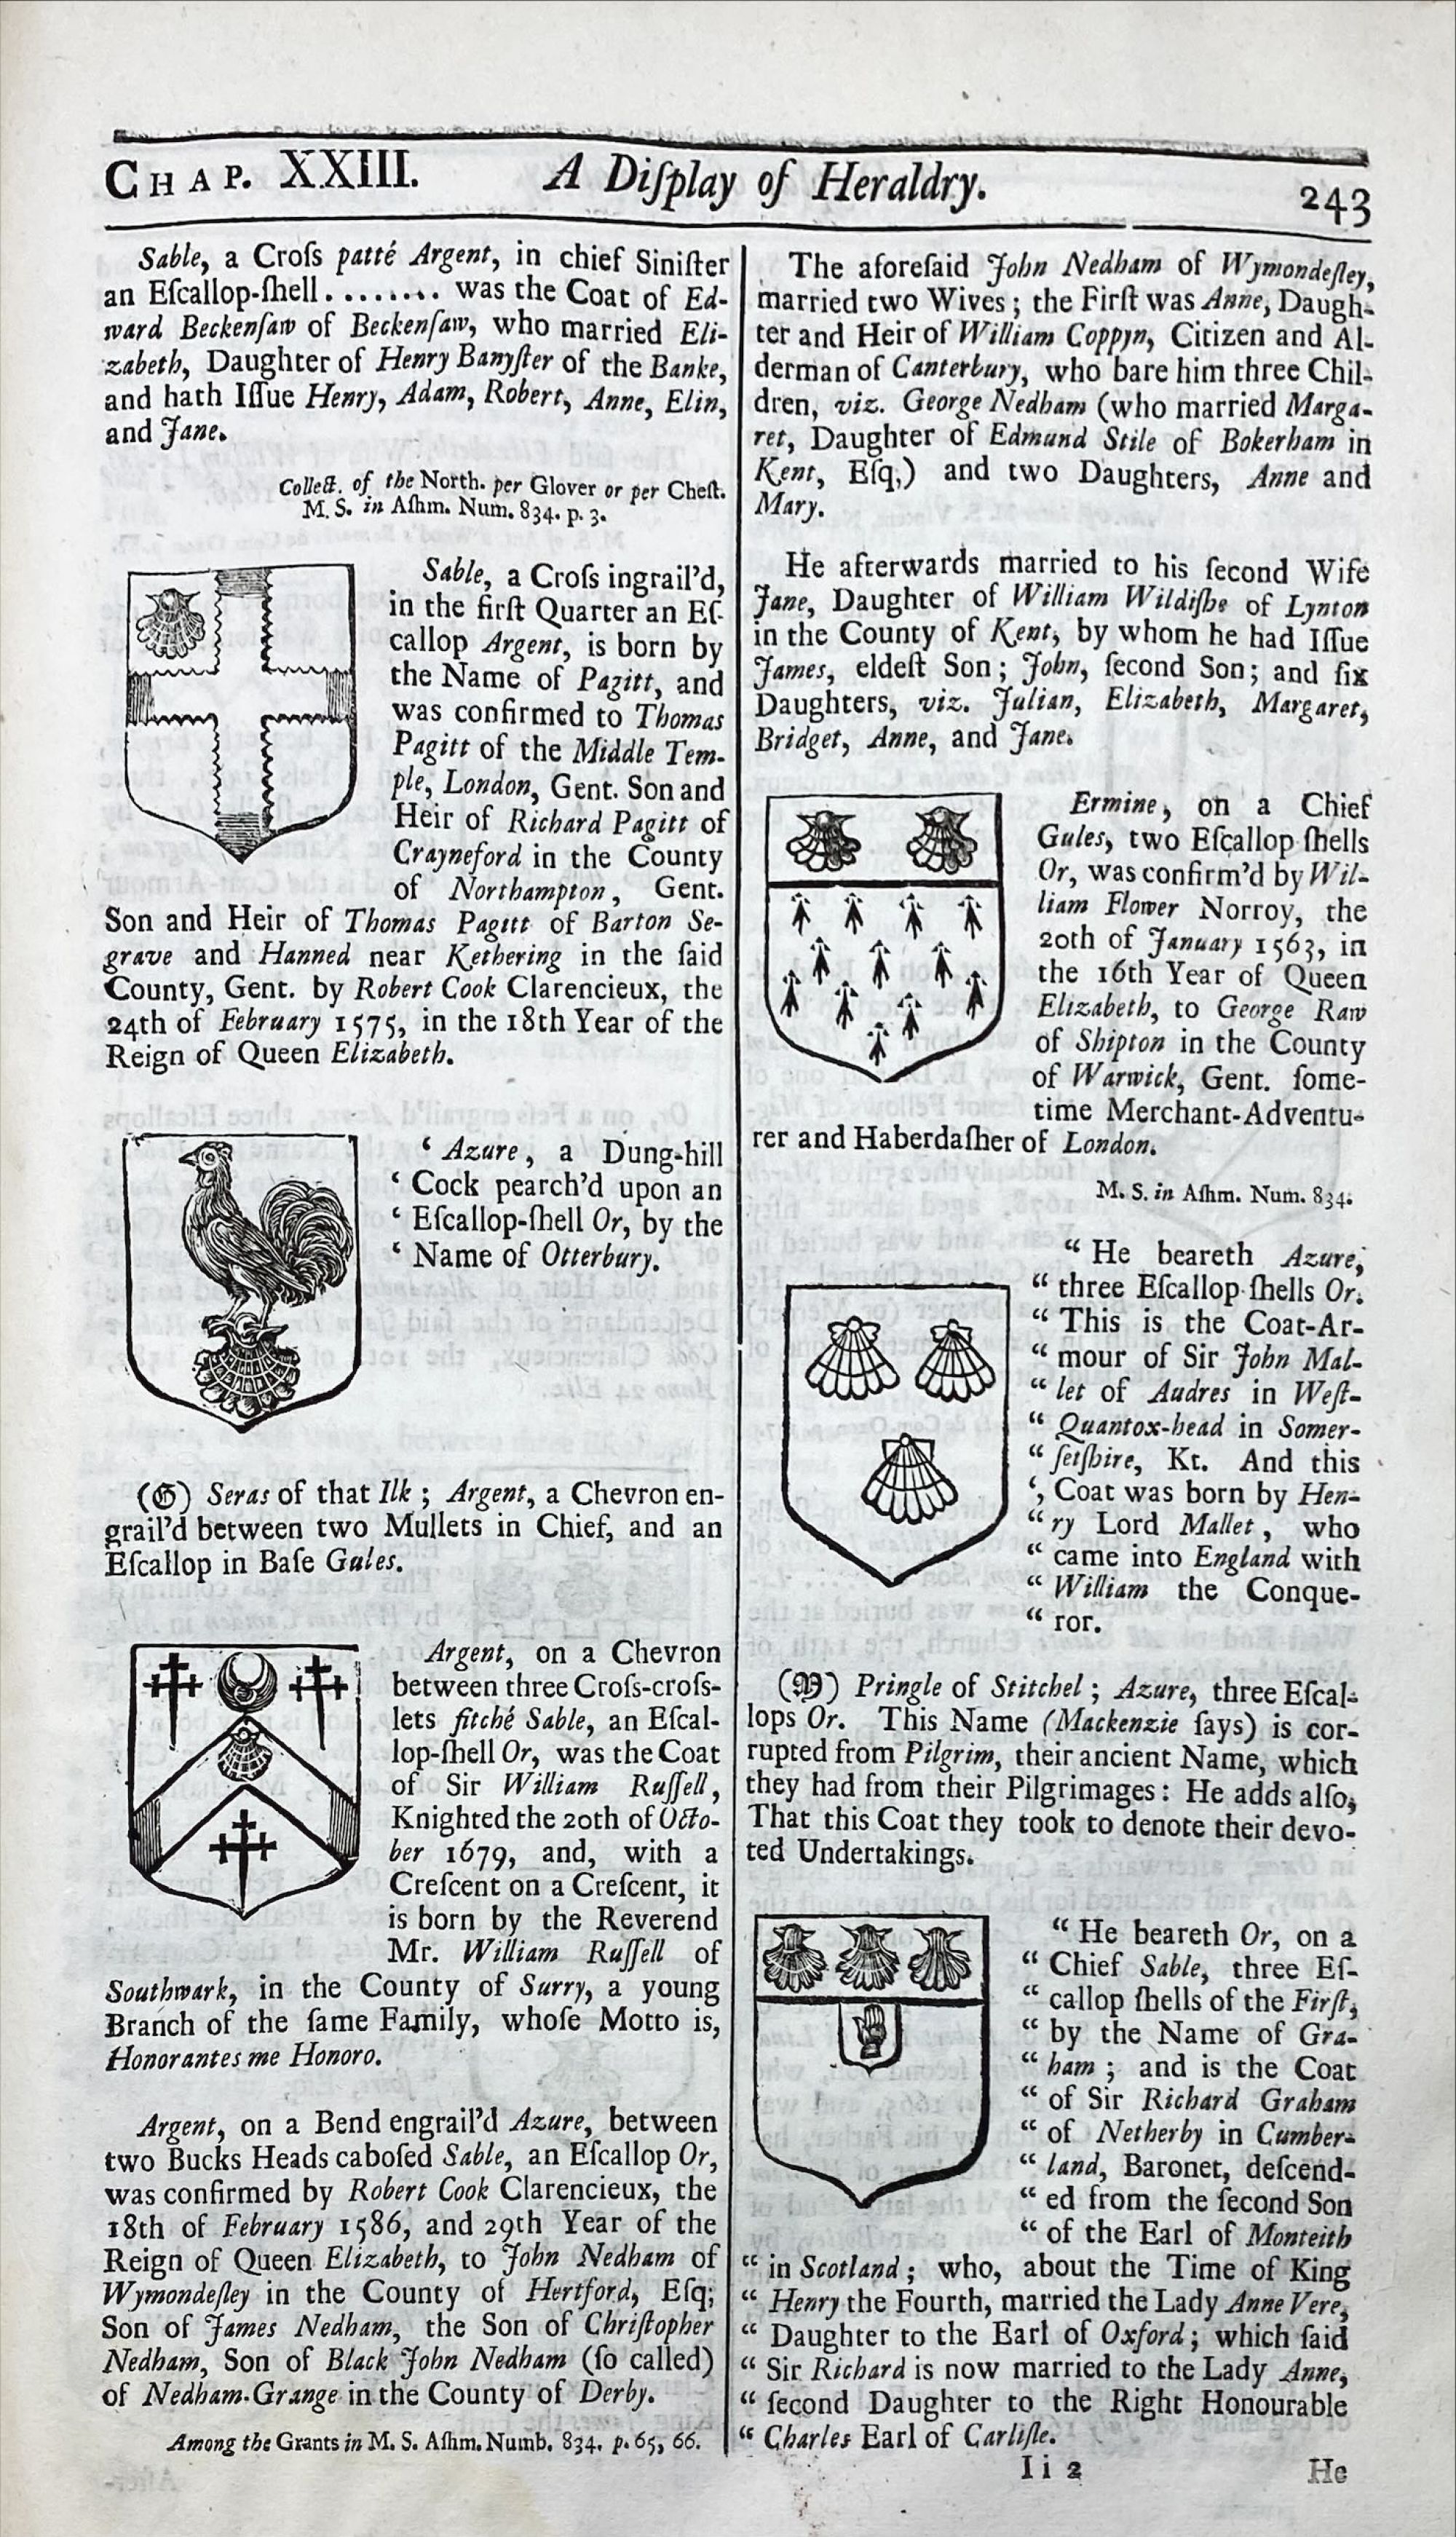 CHAP. XXIII. A Diſplay of Heraldry. 243
Sable, a Croſs patté Argent, in chief Siniſter
an Eſcallop-ſhell........ was the Coat of Ed-
ward Beckenſaw of Beckenſaw, who married Eli-
zabeth, Daughter of Henry Banyſter of the Banke,
and hath Iſſue Henry, Adam, Robert, Anne, Elin,
and Jane.
Collect. of the North. per Glover or per Cheſt.
M. S. in Aſhm. Num. 834. p. 3.
Sable, a Croſs ingrail'd,
in the firſt Quarter an Eſ-
callop Argent, is born by
the Name of Pagitt, and
was confirmed to Thomas
Pagitt of the Middle Tem-
ple, London, Gent. Son and
Heir of Richard Pagitt of
Crayneford in the County
of Northampton, Gent.
Son and Heir of Thomas Pagitt of Barton Se-
grave and Hanned near Kethering in the ſaid
County, Gent. by Robert Cook Clarencieux, the
24th of February 1575, in the 18th Year of the
Reign of Queen Elizabeth.
‘ Azure, a Dung-hill
‘ Cock pearch'd upon an
‘ Eſcallop-ſhell Or, by the
‘ Name of Otterbury.
(G) Seras of that Ilk; Argent, a Chevron en-
grail'd between two Mullets in Chief, and an
Eſcallop in Baſe Gules.
Argent, on a Chevron
between three Croſs-croſs-
lets fitché Sable, an Eſcal-
lop-ſhell Or, was the Coat
of Sir William Ruſſell,
Knighted the 20th of Octo-
ber 1679, and, with a
Creſcent on a Creſcent, it
is born by the Reverend
Mr. William Ruſſell of
Southwark, in the County of Surry, a young
Branch of the ſame Family, whoſe Motto is,
Honorantes me Honoro.
Argent, on a Bend engrail'd Azure, between
two Bucks Heads caboſed Sable, an Eſcallop Or,
was confirmed by Robert Cook Clarencieux, the
18th of February 1586, and 29th Year of the
Reign of Queen Elizabeth, to John Nedham of
Wymondeſley in the County of Hertford, Eſq;
Son of James Nedham, the Son of Chriſtopher
Nedham, Son of Black John Nedham (ſo called)
of Nedham-Grange in the County of Derby.
Among the Grants in M. S. Aſhm. Numb. 834. p. 65, 66.
The aforeſaid John Nedham of Wymondeſley,
married two Wives; the Firſt was Anne, Daugh-
ter and Heir of William Coppyn, Citizen and Al-
derman of Canterbury, who bare him three Chil-
dren, viz. George Nedham (who married Marga-
ret, Daughter of Edmund Stile of Bokerham in
Kent, Eſq;) and two Daughters, Anne and
Mary.
He afterwards married to his ſecond Wife
Jane, Daughter of William Wildiſhe of Lynton
in the County of Kent, by whom he had Iſſue
James, eldeſt Son; John, ſecond Son; and ſix
Daughters, viz. Julian, Elizabeth, Margaret,
Bridget, Anne, and Jane.
Ermine, on a Chief
Gules, two Eſcallop-ſhells
Or, was confirm'd by Wil-
liam Flower Norroy, the
20th of January 1563, in
the 16th Year of Queen
Elizabeth, to George Raw
of Shipton in the County
of Warwick, Gent. ſome-
time Merchant-Adventu-
rer and Haberdaſher of London.
M. S. in Aſhm. Num. 834.
“ He beareth Azure,
“ three Eſcallop-ſhells Or.
“ This is the Coat-Ar-
“ mour of Sir John Mal-
“ let of Audres in Weſt-
“ Quantox-head in Somer-
“ ſetſhire, Kt. And this
‘, Coat was born by Hen-
“ ry Lord Mallet, who
“ came into England with
“ William the Conque-
“ ror.
(M) Pringle of Stitchel; Azure, three Eſcal-
lops Or. This Name (Mackenzie ſays) is cor-
rupted from Pilgrim, their ancient Name, which
they had from their Pilgrimages: He adds alſo,
That this Coat they took to denote their devo-
ted Undertakings.
“ He beareth Or, on a
“ Chief Sable, three Eſ-
“ callop ſhells of the Firſt,
“ by the Name of Gra-
“ ham; and is the Coat
“ of Sir Richard Graham
“ of Netherby in Cumber-
“ land, Baronet, deſcend-
“ ed from the ſecond Son
“ of the Earl of Monteith
“ in Scotland; who, about the Time of King
“ Henry the Fourth, married the Lady Anne Vere,
“ Daughter to the Earl of Oxford; which ſaid
“ Sir Richard is now married to the Lady Anne,
“ ſecond Daughter to the Right Honourable
“ Charles Earl of Carliſle.
I i 2 He